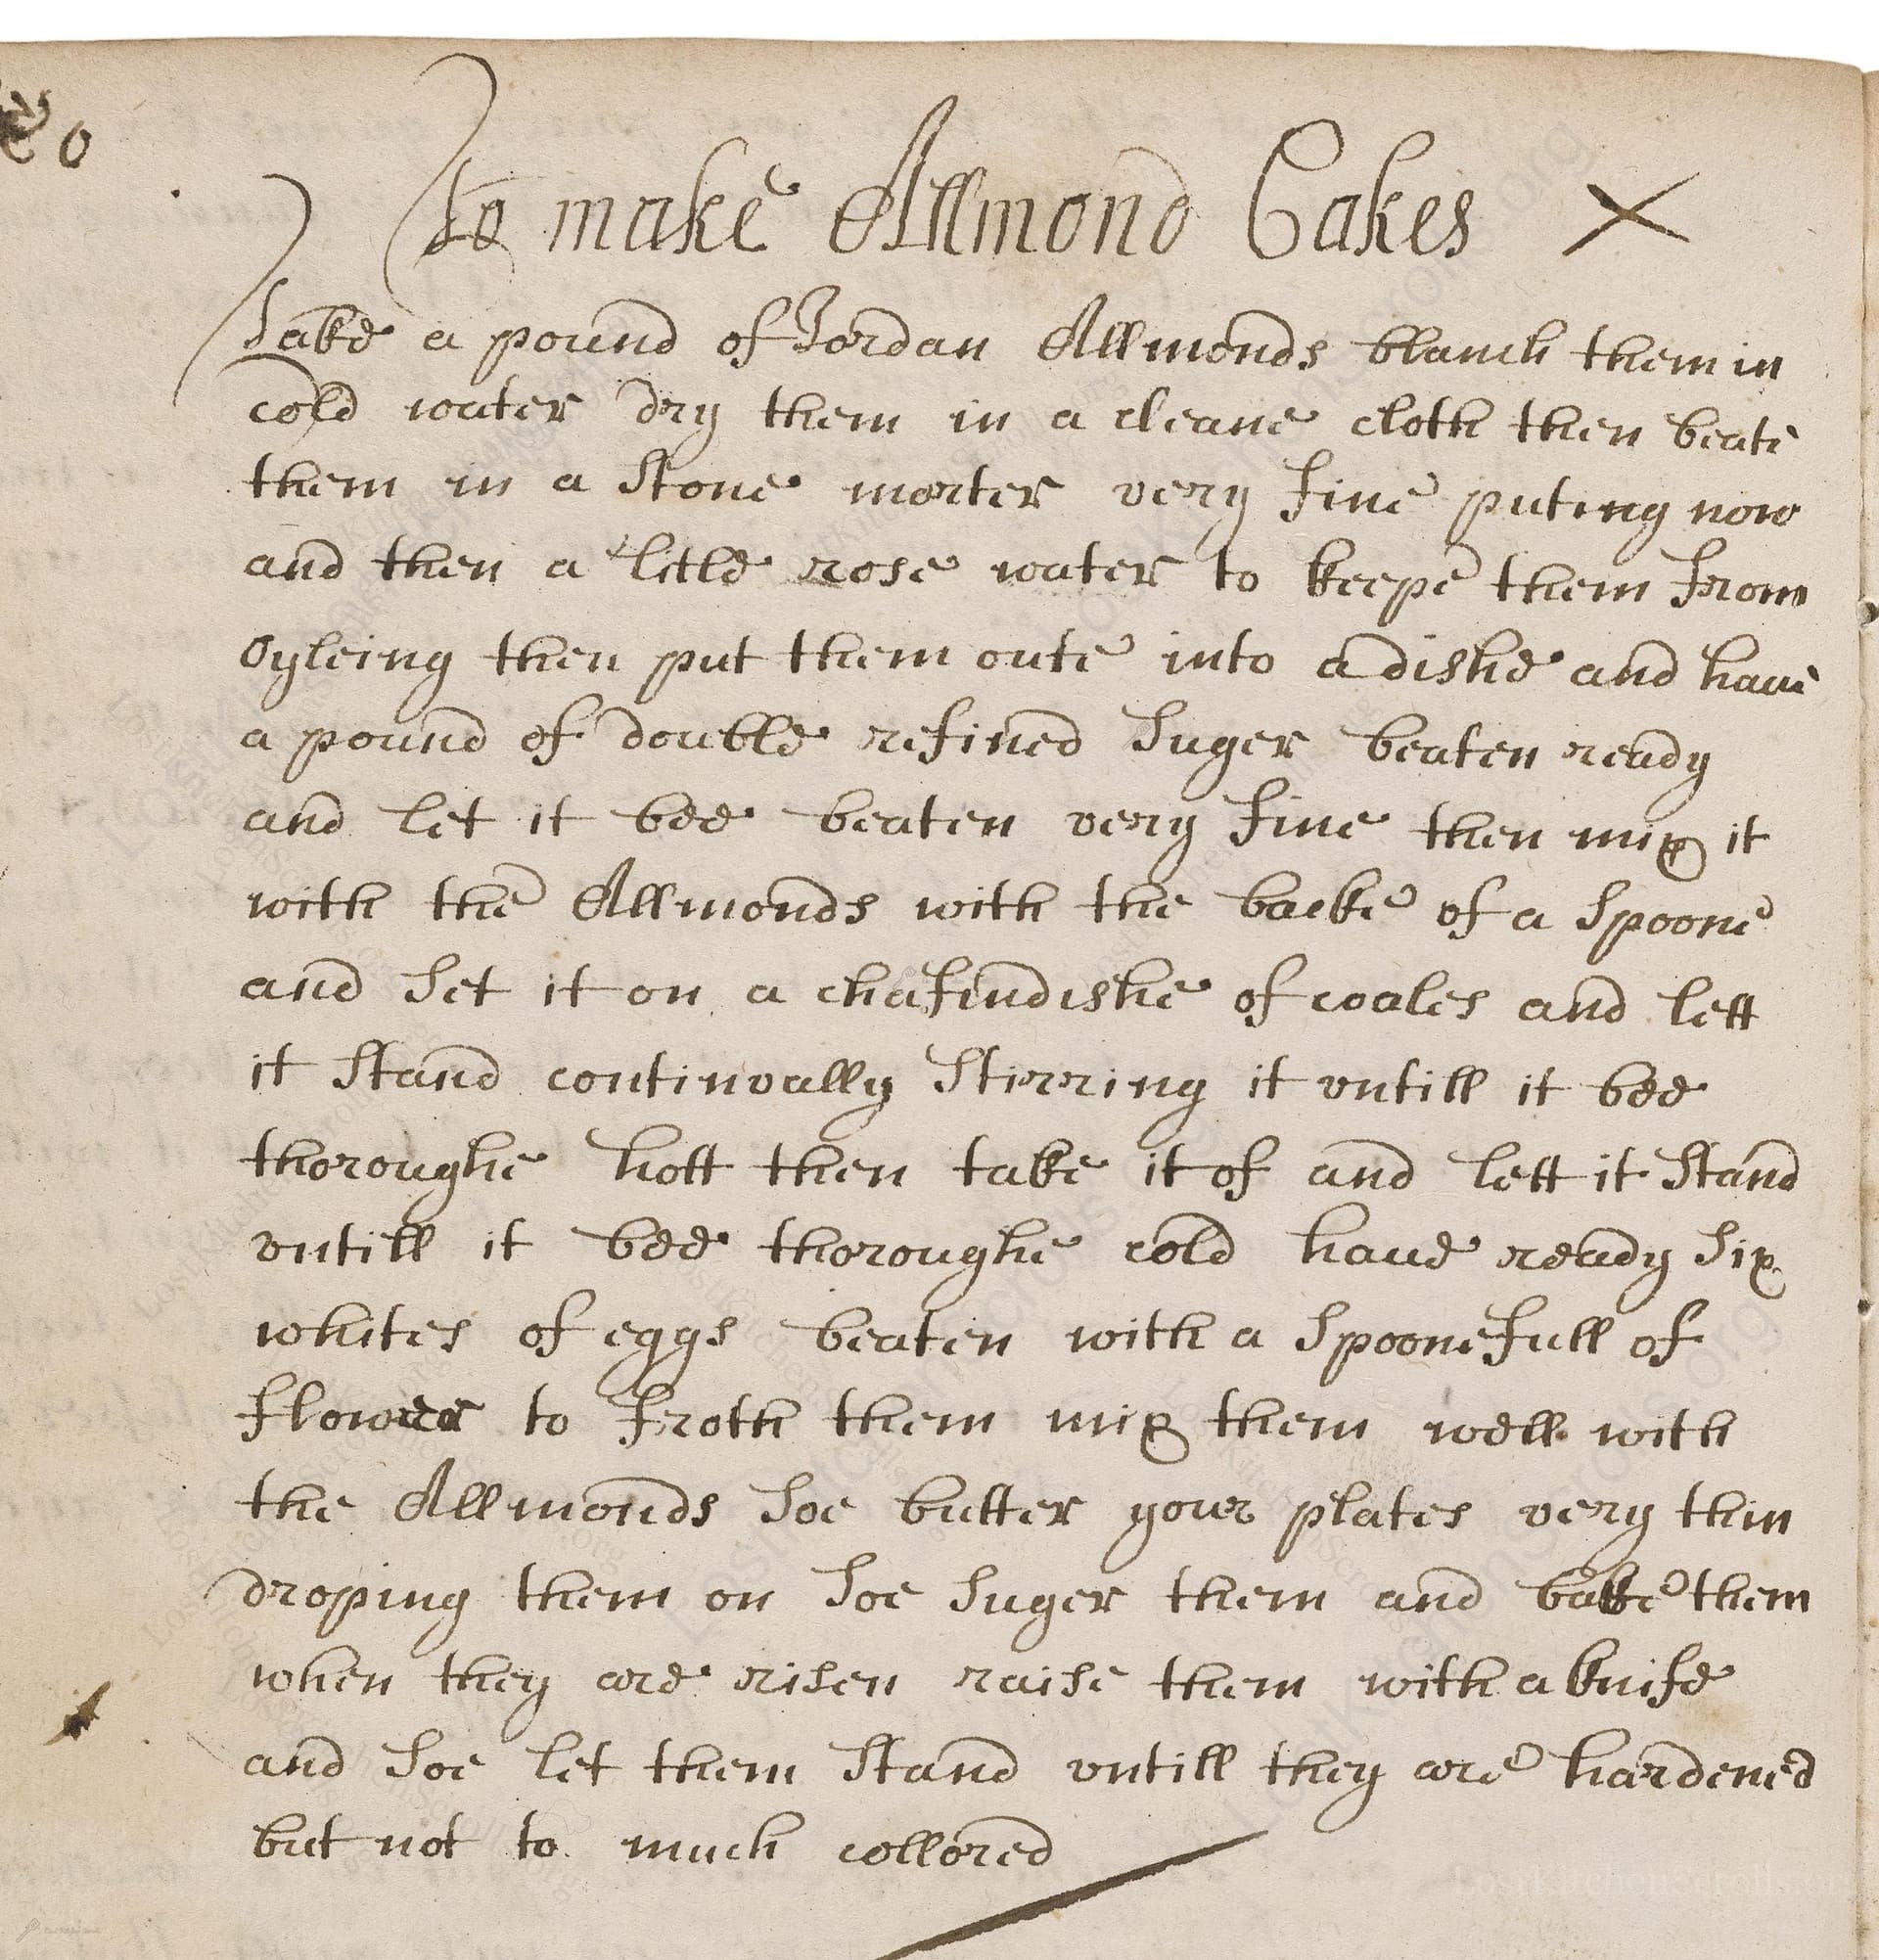 To make Allmond Cakes X
Take a pound of Jordan Allmonds blanch them in
cold water dry them in a cleane cloth then beate
them in a stone morter very fine puting now
and then a litle rose water to keepe them from
oyleing then put them oute into a dishe and have
a pound of double refined suger beaten ready
and let it bee beaten very fine then mix it
with the Allmonds with the backe of a spoone
and set it on a chafindishe of coales and lett
it stand continvally stirring it vntill it bee
thoroughe hott then take it of and lett it stand
vntill it bee thoroughe cold haue ready six
whites of eggs beaten with a spoonefull of
flower to froth them mix them well with
the Allmonds soe butter your plates very thin
droping them on soe suger them and bake them
when they are risen raise them with a knife
and soe let them stand vntill they are hardened
but not to much collored